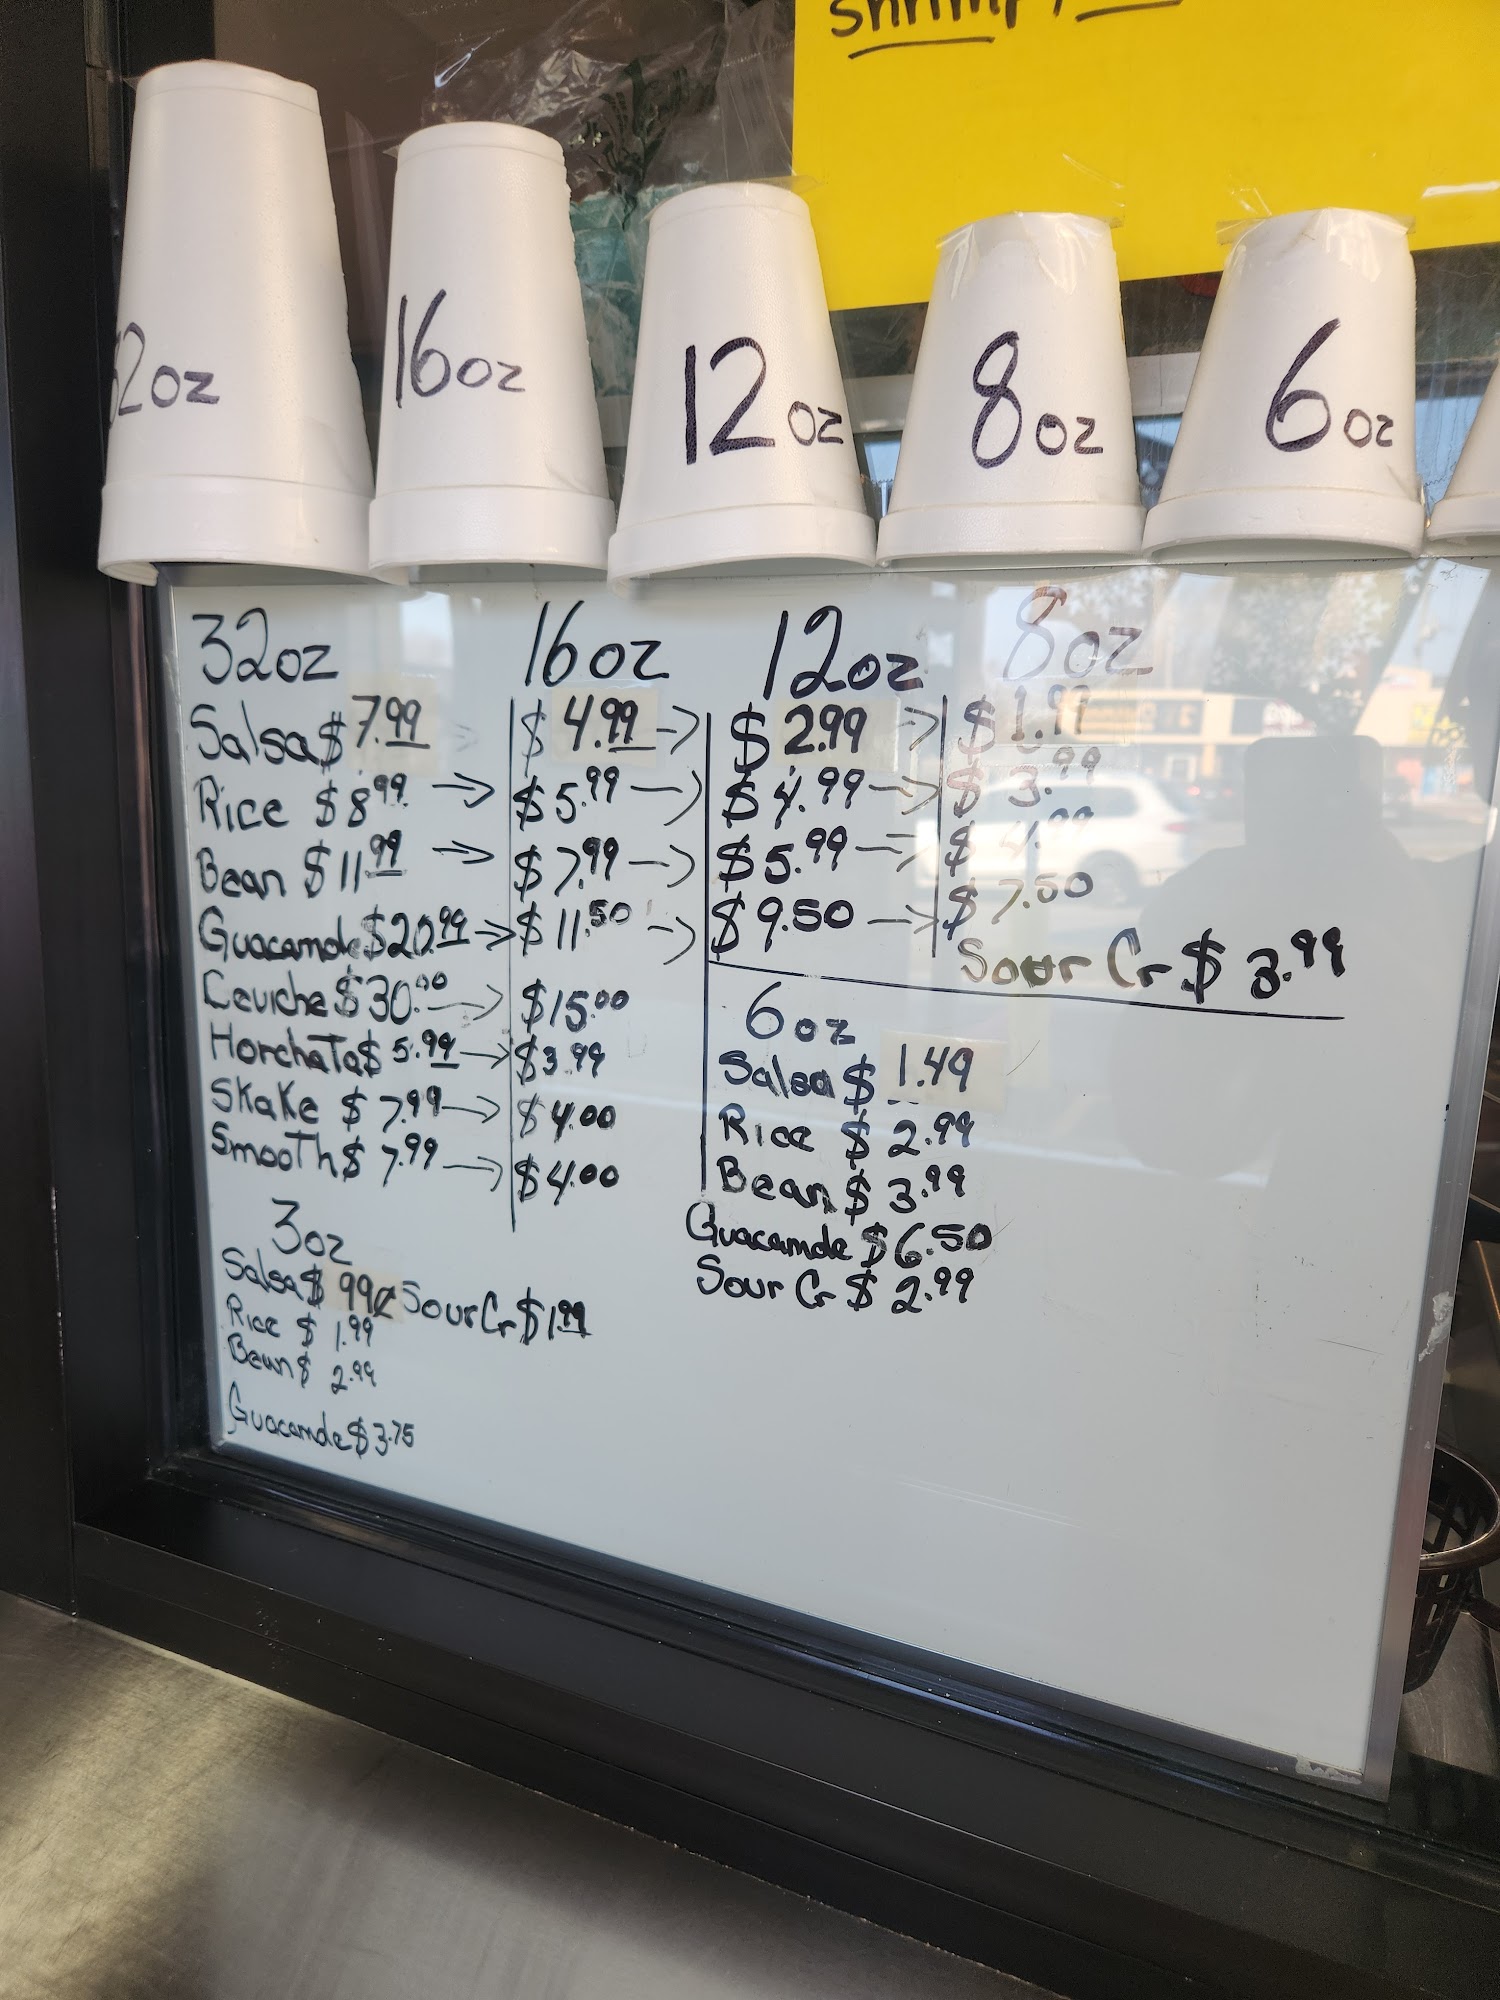 shrimp
32oz
16oz
12oz
8oz
6oz
32oz 16oz 12oz 8oz
Salsa $ 7.99 $ 4.99 → $ 2.99 → $ 1.99
Rice $ 8.99 → $ 5.99 → $ 4.99 → $ 3.99
Bean $ 11.99 → $ 7.99 → $ 5.99 → $ 4.99
Guacamole $20.99 → $ 11.50 → $ 9.50 → $ 7.50
Sour Cr $ 3.99
Ceviche $30.00 → $15.00
Horchata $ 5.99 → $3.99
Skake $ 7.99 → $ 4.00
Smooth $ 7.99 → $4.00
6oz
Salsa $ 1.49
Rice $ 2.99
Bean $ 3.99
Guacamole $6.50
Sour Cr $ 2.99
3oz
Salsa $ 99¢ Sour Cr $1.99
Rice $ 1.99
Bean $ 2.99
Guacamole $3.75